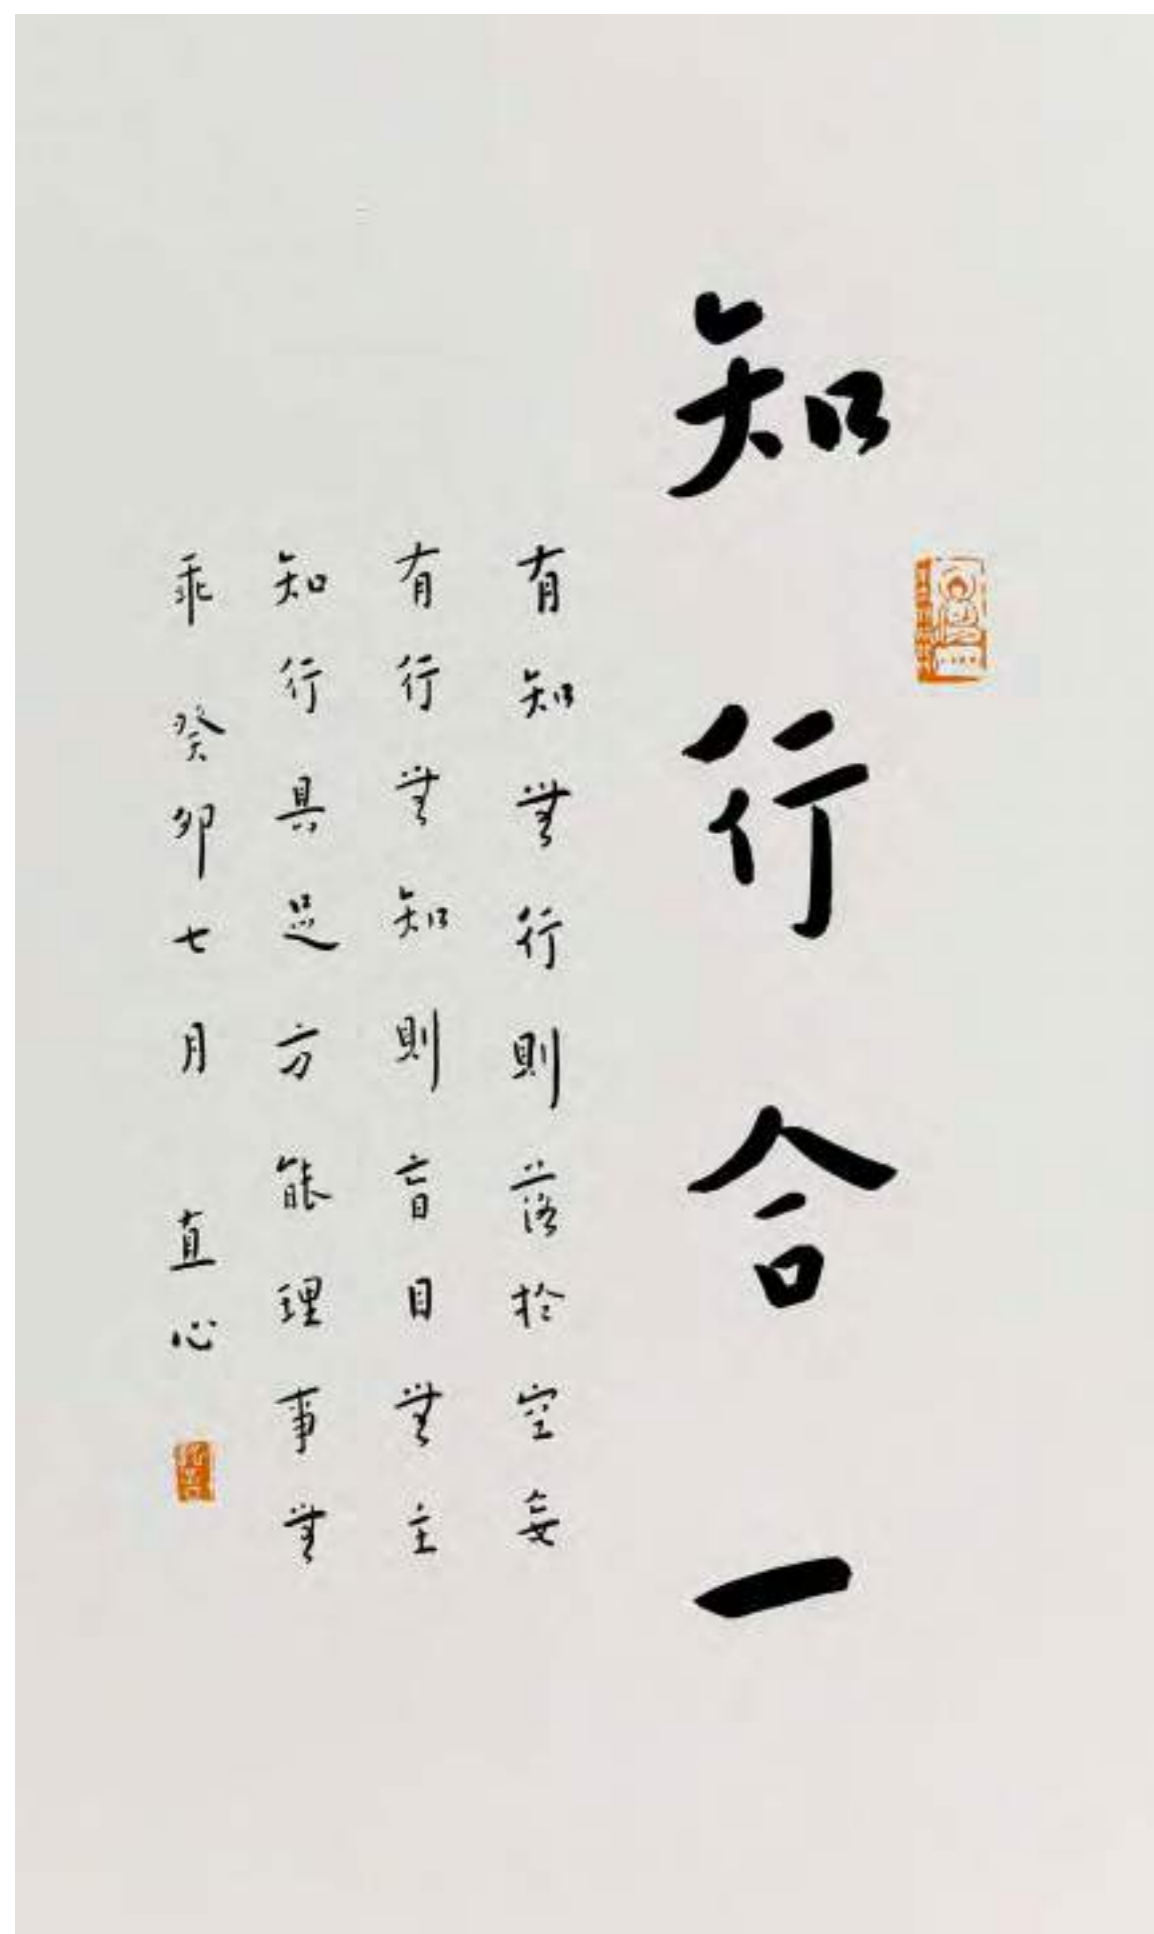 知行合一
有知無行則落於空妄
有行無知則盲目無主
知行具足方能理事無
乖 癸卯七月 直心